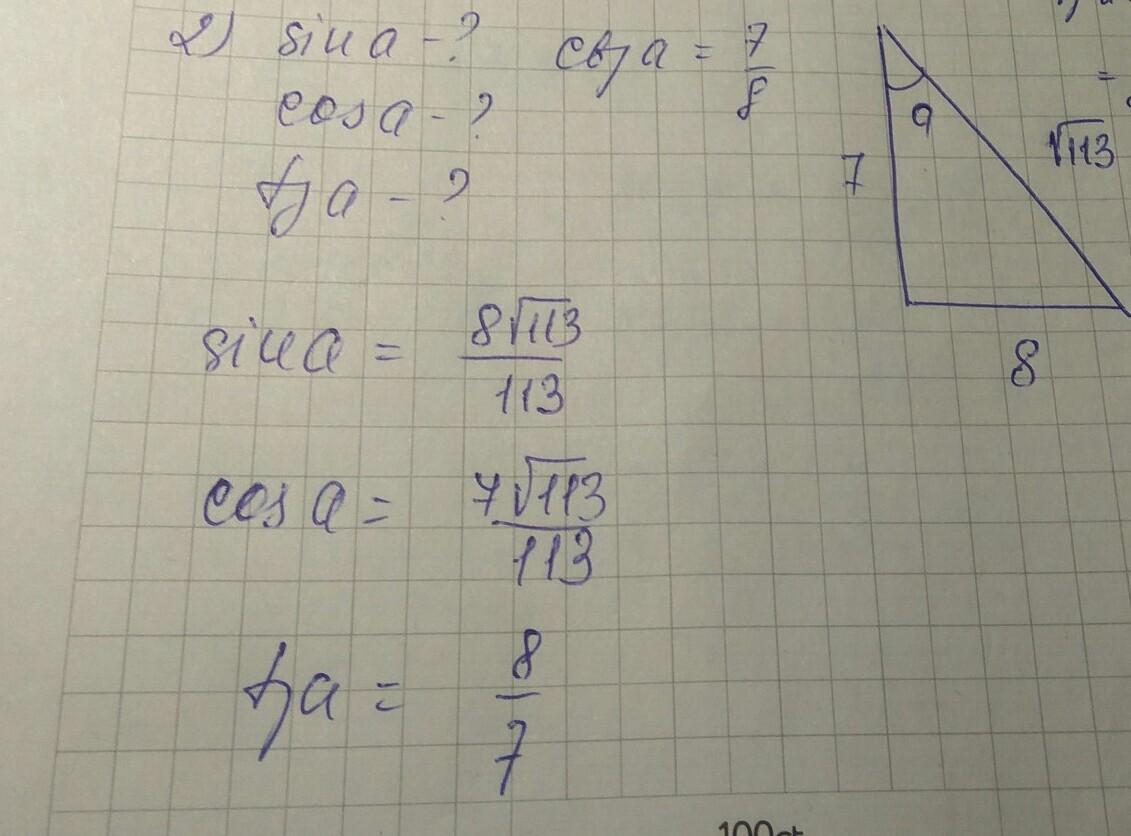 2) sin a - ? ctg a = 7/8
cos a - ?
tg a - ?
a
7
√113
8
=
sin a = 8√113/113
cos a = 7√113/113
tg a = 8/7